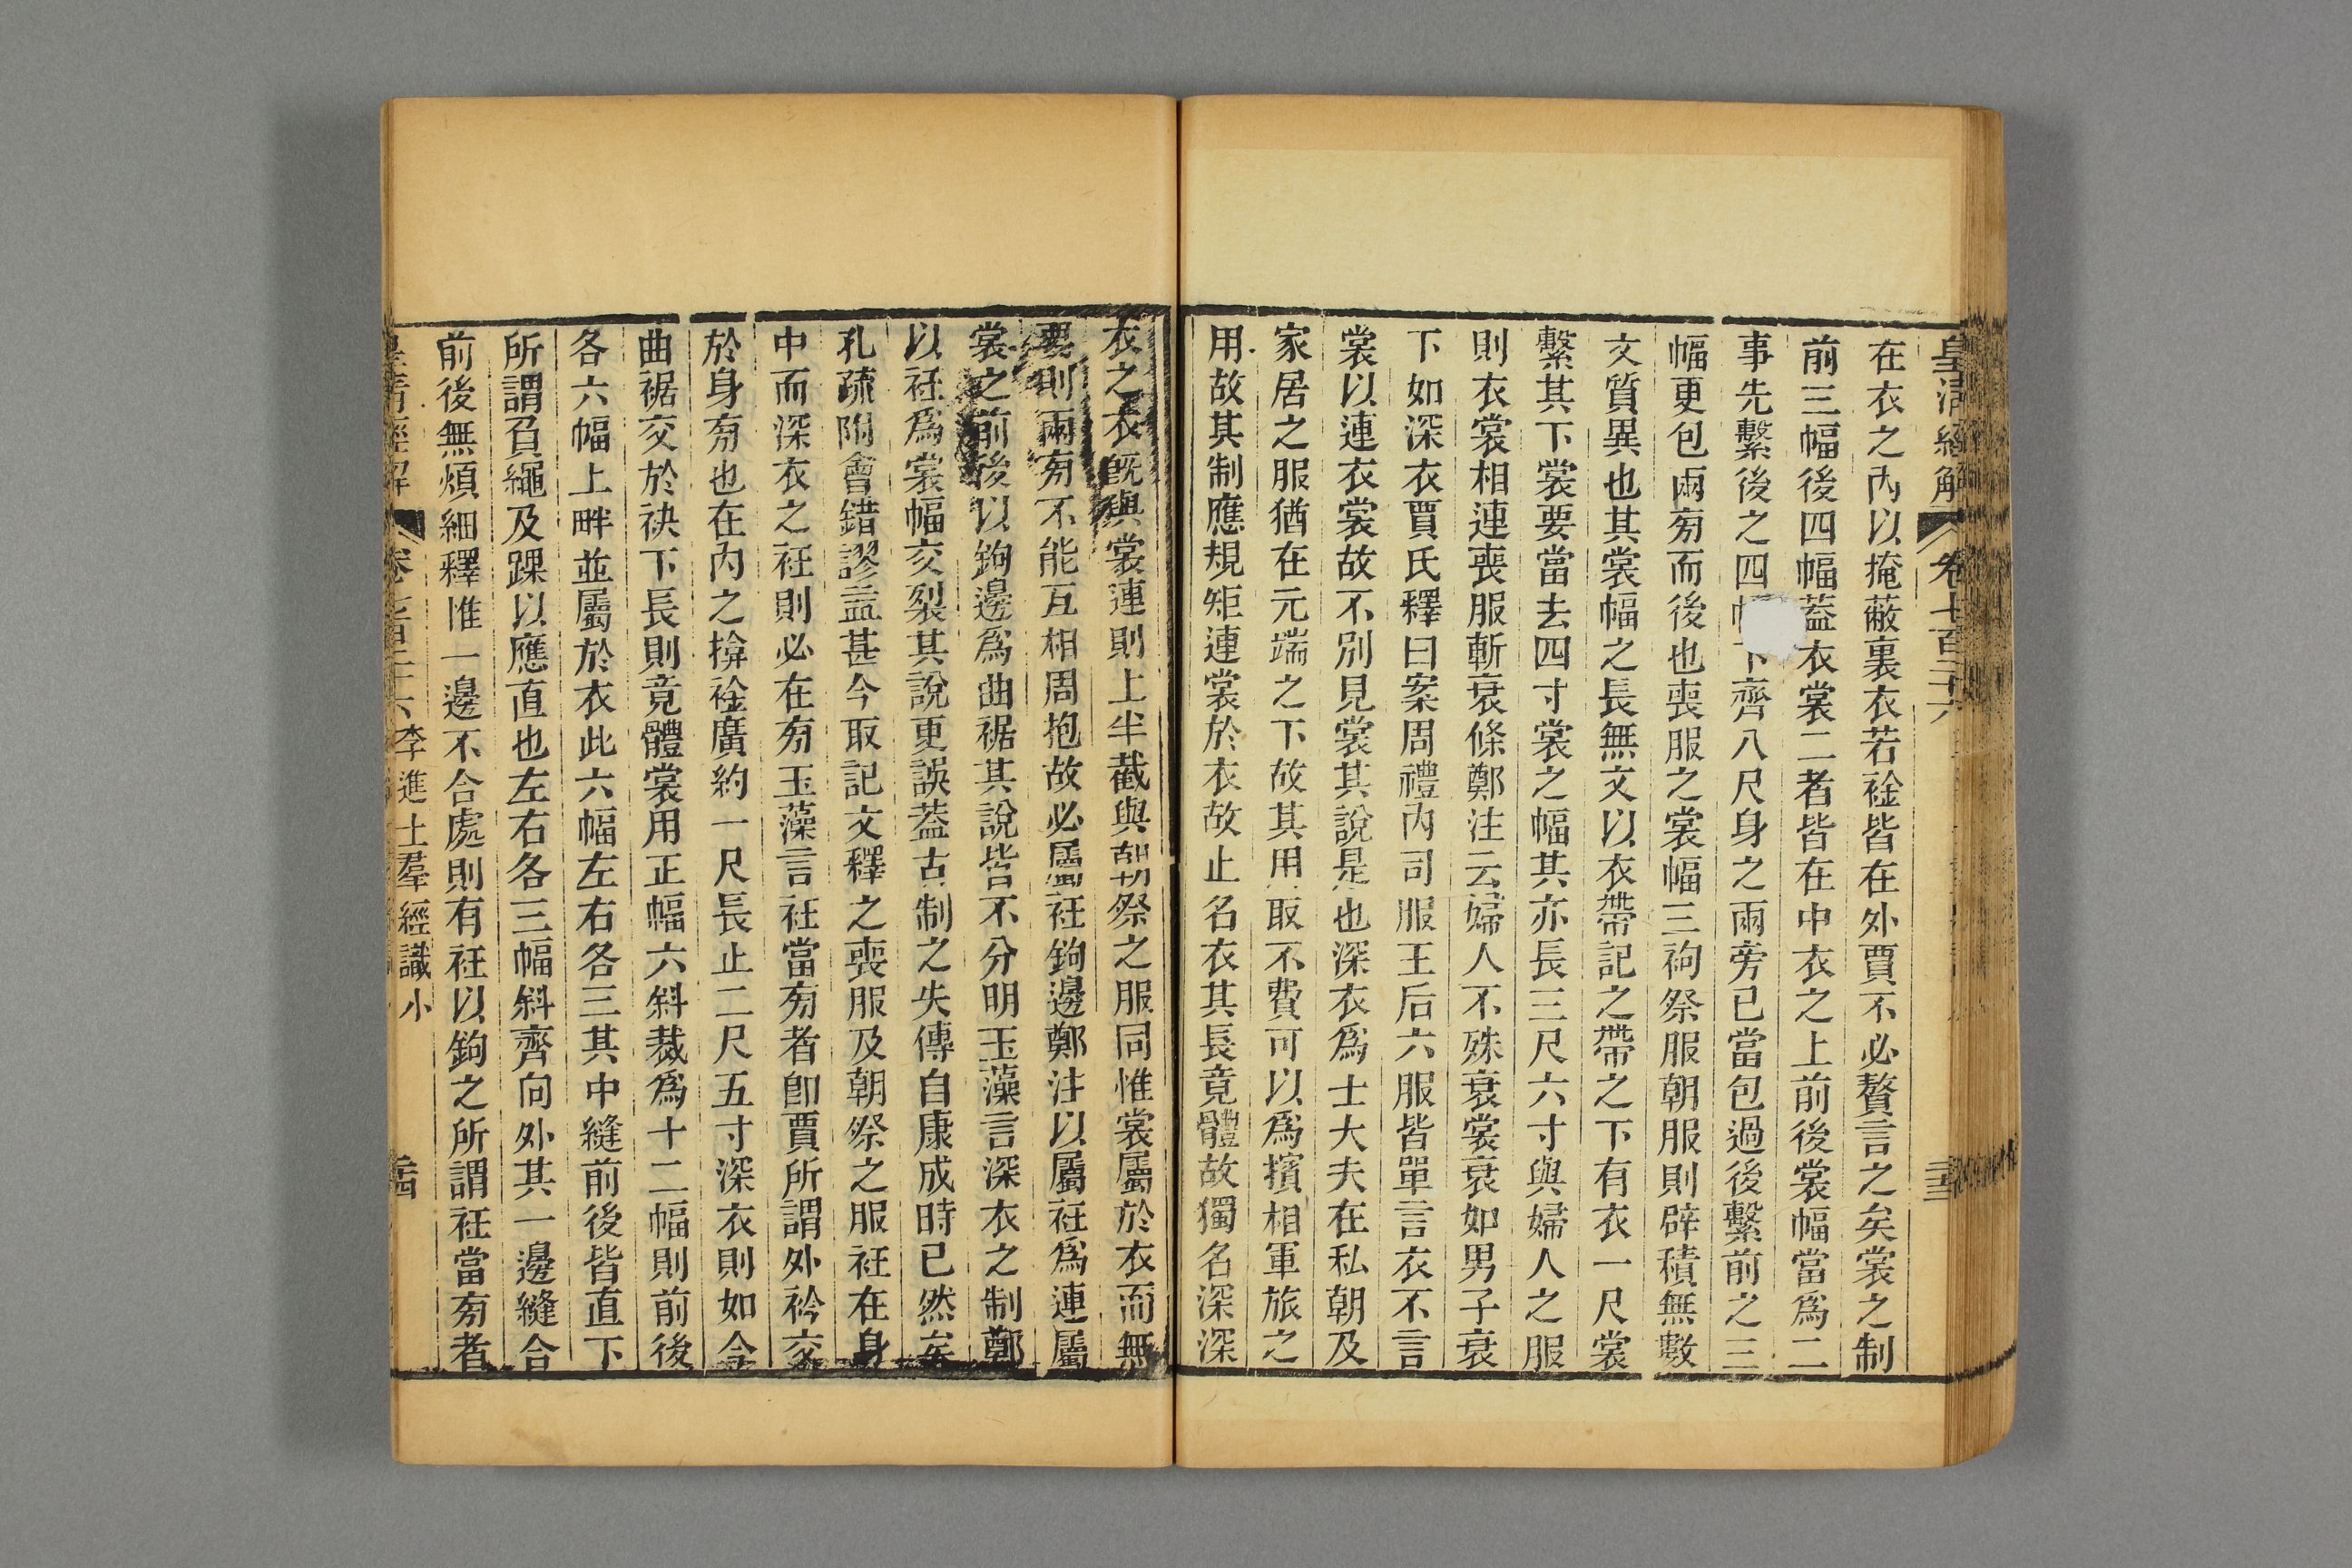 皇清經解 卷七百二十六
在衣之內以掩蔽裏衣若衽皆在外賈不必贅言之矣裳之制
前三幅後四幅蓋衣裳二者皆在中衣之上前後裳幅當爲二
事先繫後之四 下齊八尺身之兩旁已當包過後繫前之三
幅更包兩旁而後也喪服之裳幅三袧祭服朝服則辟積無數
文質異也其裳幅之長無文以衣帶記之帶之下有衣一尺裳
繫其下裳要當去四寸裳之幅其亦長三尺六寸與婦人之服
則衣裳相連喪服斬衰條鄭注云婦人不殊衰裳衰如男子衰
下如深衣賈氏釋曰案周禮內司服王后六服皆單言衣不言
裳以連衣裳故不別見裳其說是也深衣爲士大夫在私朝及
家居之服猶在元端之下故其用取不費可以爲擯相軍旅之
用故其制應規矩連裳於衣故止名衣其長竟體故獨名深深
衣之衣旣與裳連則上半截與朝祭之服同惟裳屬於衣而無
要則兩旁不能互相周抱故必屬衽鉤邊鄭注以屬衽爲連屬
裳之前後以鉤邊爲曲裾其說皆不分明玉藻言深衣之制鄭
以衽爲裳幅交裂其說更誤蓋古制之失傳自康成時已然矣
孔疏附會錯謬益甚今取記文釋之喪服及朝祭之服衽在身
中而深衣之衽則必在旁玉藻言衽當旁者卽賈所謂外衿交
於身旁也在內之揜衽廣約一尺長止二尺五寸深衣則如今
曲裾交於袂下長則竟體裳用正幅六斜裁爲十二幅則前後
各六幅上畔並屬於衣此六幅左右各三其中縫前後皆直下
所謂負繩及踝以應直也左右各三幅斜齊向外其一邊縫合
前後無煩細釋惟一邊不合處則有衽以鉤之所謂衽當旁者
皇清經解 卷七百二十六 李進士羣經識小 茜